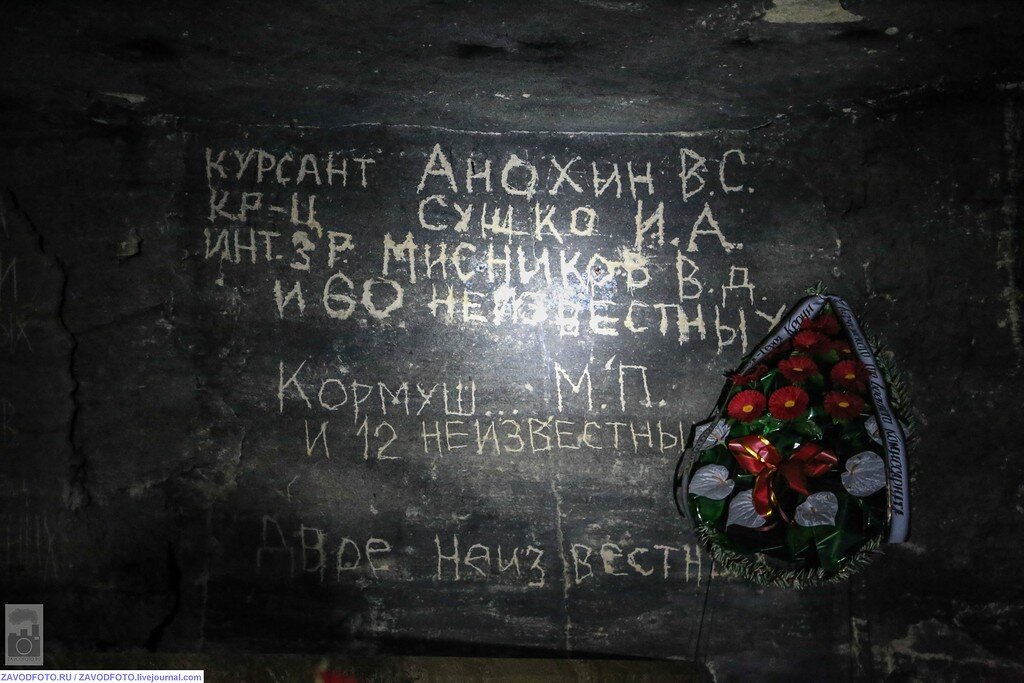 КУРСАНТ АНОХИН В.С.
КР-Ц СУШКО И.А.
ИНТ.3 Р. МИСНИКОВ В.Д.
И 60 НЕИЗВЕСТНЫХ
КОРМУШ... М.П.
И 12 НЕИЗВЕСТНЫ
ДВОЕ НЕИЗВЕСТН
Керчи
ZAVODFOTO.RU / ZAVODFOTO.livejournal.com